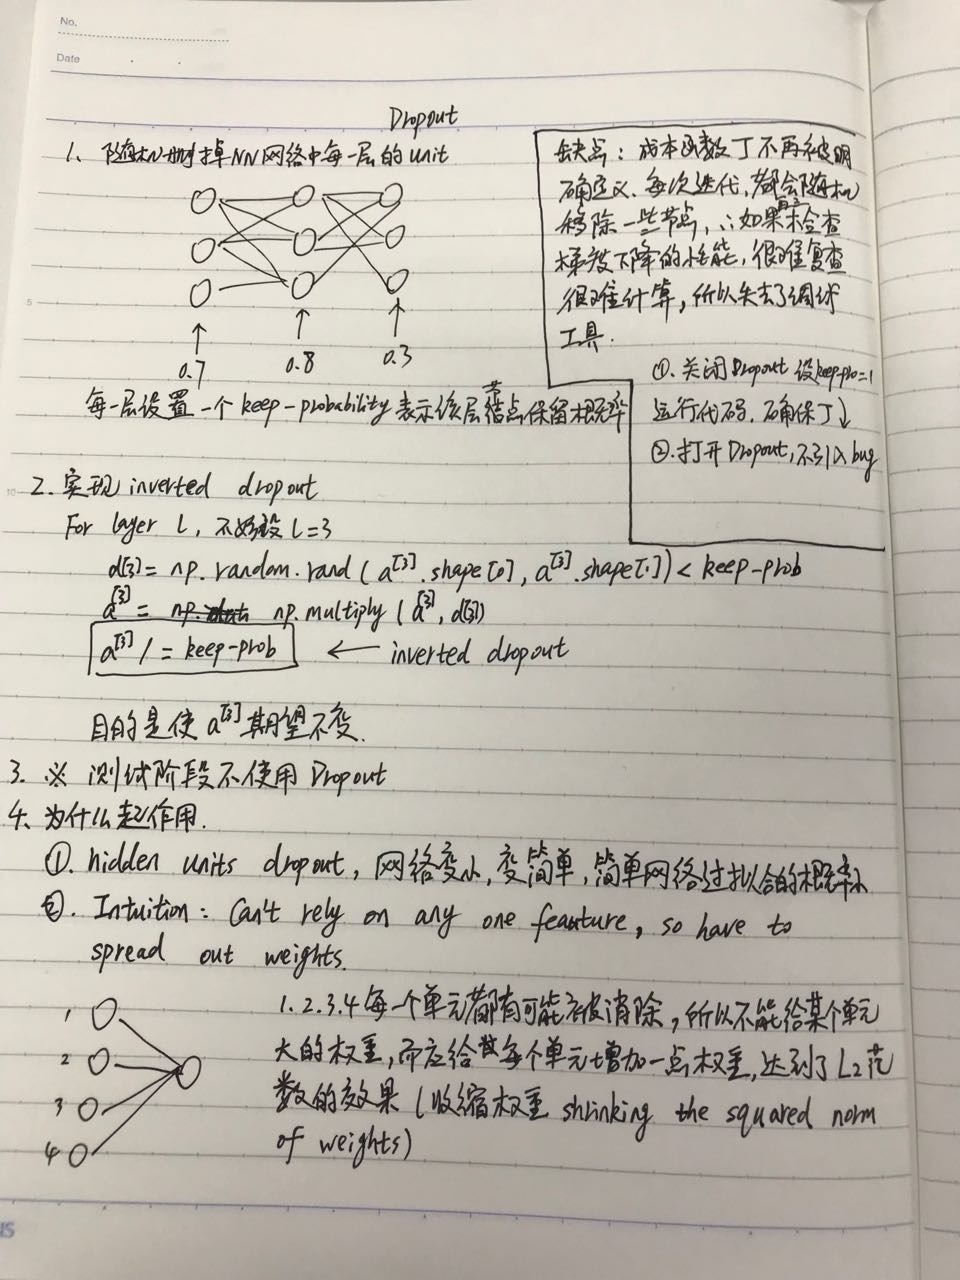 No.
Date
Dropout
1. 随机删掉NN网络中每一层的unit
0.7
0.8
0.3
每一层设置一个keep-probability表示该层节点保留概率
缺点：成本函数J不再被明
确定义、每次迭代，都会随机
移除一些节点，∴如果再检查
梯度下降的性能，很难复查
很难计算，所以失去了调试
工具.
①. 关闭Dropout 设keep-pro=1
运行代码. 确保J↓
②. 打开Dropout, 不引入bug
2. 实现inverted dropout
For layer l, 不妨设 l=3
d[3] = np.random.rand(a[3].shape[0], a[3].shape[1]) < keep-prob
a[3] = np.multiply(a[3], d[3])
a[3] /= keep-prob ← inverted dropout
目的是使a[3]期望不变.
3. ※ 测试阶段不使用Dropout
4、为什么起作用.
①. hidden units dropout, 网络变小, 变简单, 简单网络过拟合的概率小
②. Intuition: Can't rely on any one feauture, so have to
spread out weights.
1
2
3
4
1.2.3.4每一个单元都有可能被消除，所以不能给某个单元
大的权重，而应给每个单元增加一点权重，达到了L2范
数的效果 (收缩权重 shrinking the squared norm
of weights)
5
10